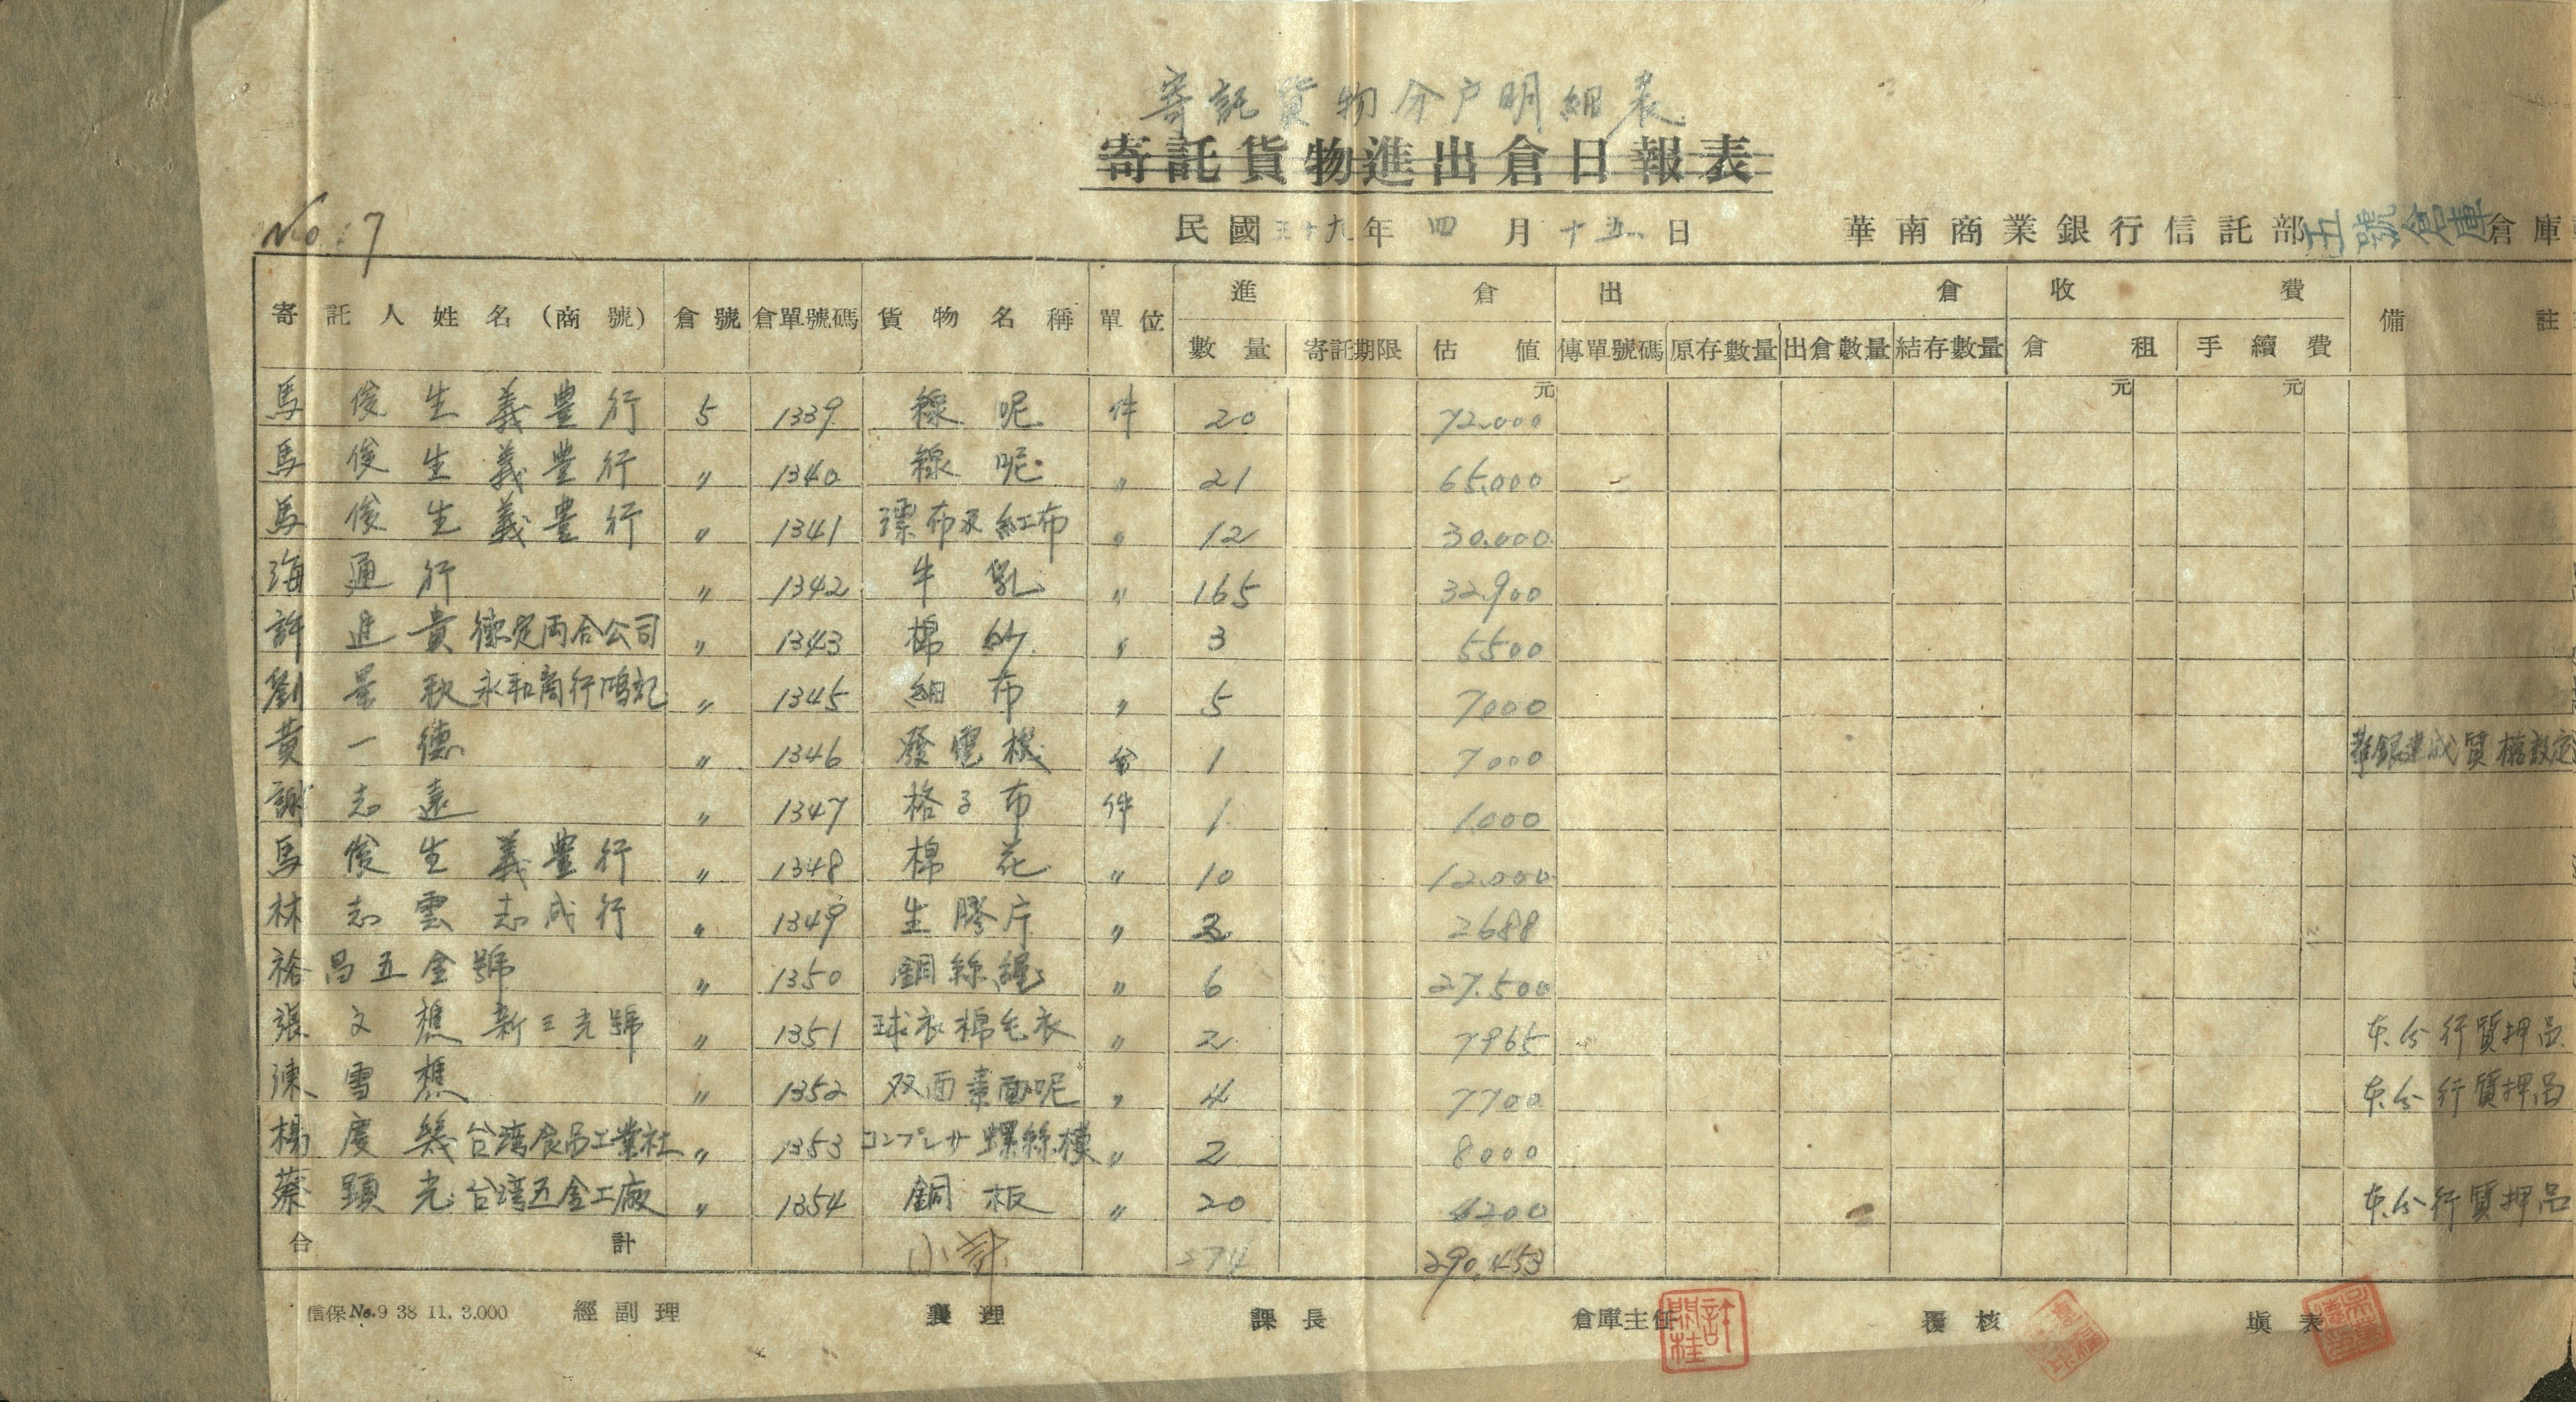 寄託貨物分戶明細表
寄託貨物進出倉日報表
No. 7
民國三十九年 四 月 十五 日
華南商業銀行信託部五號倉庫倉庫
寄託人姓名（商號） 倉號 倉單號碼 貨物名稱 單位 進倉 出倉 收費 備註
數量 寄託期限 估值 傳單號碼 原存數量 出倉數量 結存數量 倉租 手續費
元 元 元
馬俊生 義豊行 5 1339 線呢 件 20 72.000
馬俊生 義豊行 〃 1340 線呢 〃 21 65.000
馬俊生 義豊行 〃 1341 漂布及紅布 〃 12 30.000
海通行 〃 1342 牛乳 〃 165 32.900
許進貴 德定両合公司 〃 1343 棉紗 〃 3 5500
劉 秋 永和商行鴻記 〃 1345 細布 〃 5 7000
黄一德 〃 1346 發電機 台 1 7000 華銀建成質權設定
謝志遠 〃 1347 格子布 件 1 1.000
馬俊生 義豊行 〃 1348 棉花 〃 10 12.000
林志雲 志成行 〃 1349 生膠片 〃 2688
裕昌五金號 〃 1350 鋼絲繩 〃 6 27.500
張文樵 新三光號 〃 1351 球衣棉毛衣 〃 2 7965 本分行質押品
陳雪樵 〃 1352 双面素面呢 〃 4 7700 本分行質押品
楊慶 台湾食品工業社 〃 1353 コンプレサ 螺絲模 〃 2 8000
蔡顕光 台湾五金工廠 〃 1354 銅板 〃 20 4200 本分行質押品
合計 小計 274 290,453
信保No.9 38 11. 3.000 經副理 襄理 課長 倉庫主任 覆核 塡表
許開桂